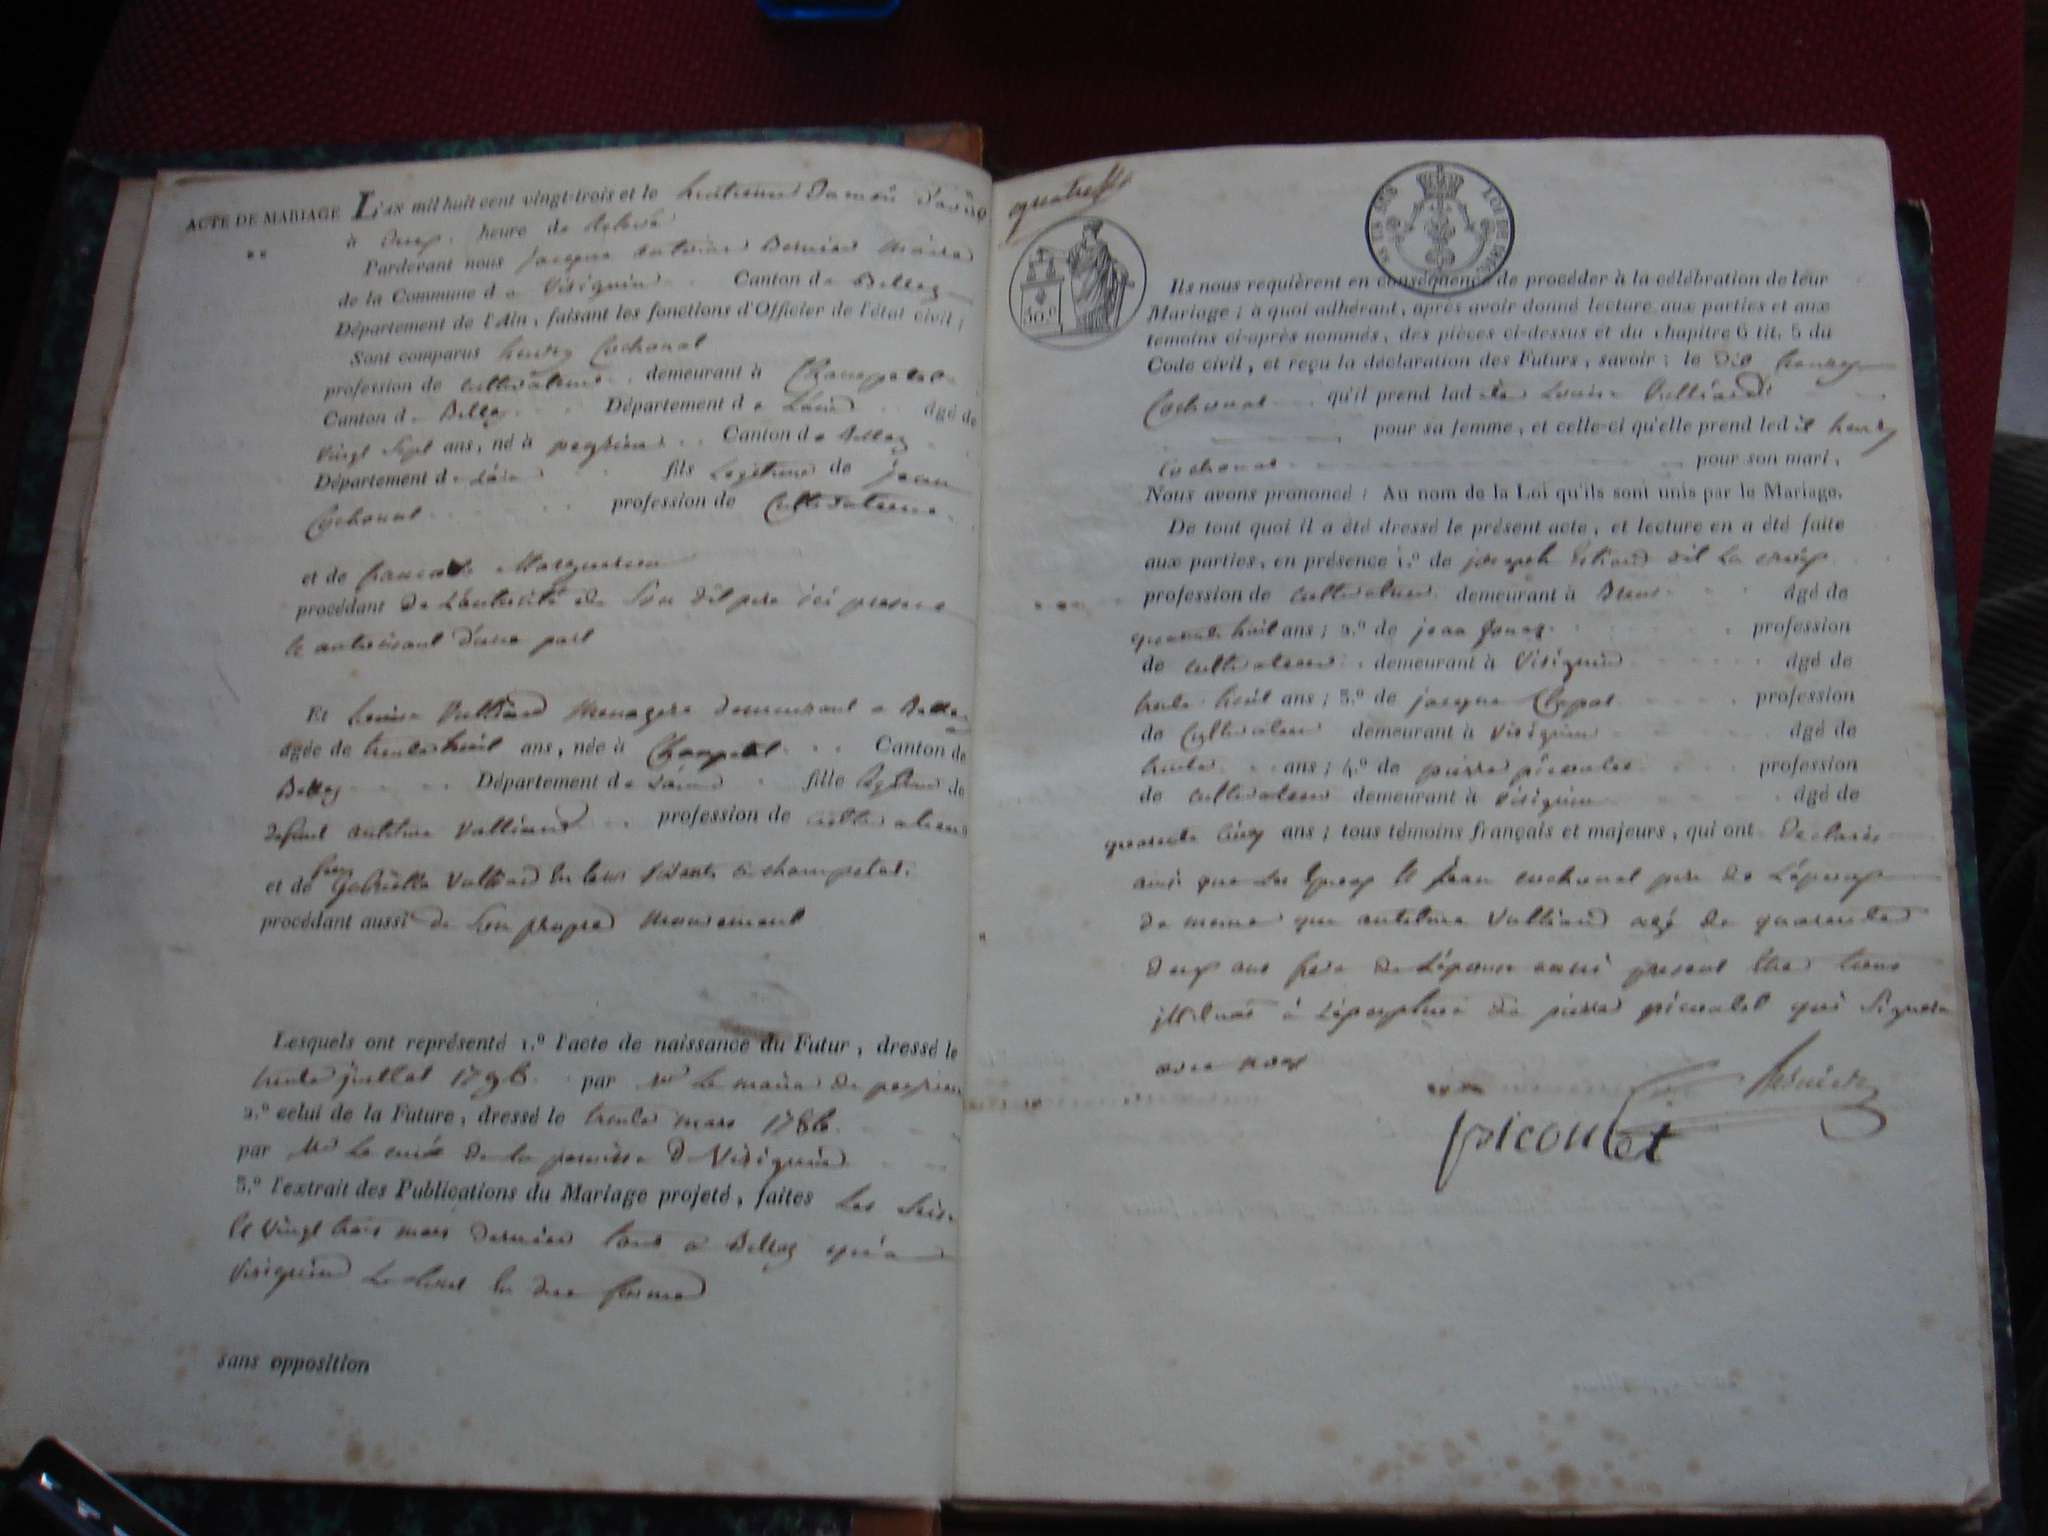 ACTE DE MARIAGE L'AN mil huit cent vingt-trois et le huitieme du mois d'avril
à deux heure de relevé
Pardevant nous jacque antoine Bernier Maire
de la Commune de Virignin Canton de Belley
Département de l'Ain, faisant les fonctions d'Officier de l'état civil;
Sont comparus henry Cochonat
profession de cultivateur demeurant à Champetel
Canton de Belley Département de L'ain âgé de
vingt sept ans, né à peyrieu Canton de Belley
Département de L'ain fils Legitime de jean
Cochonat profession de Cultivateur
et de
procédant de L'autorité de Son dit pere ici present
le autorisant d'une part
Et Louise Vulliand Menagere demeurant a Belley
âgée de trente huit ans, née à Champetel Canton de
Belley Département de L'ain fille legitime de
defunt antoine Vulliand profession de cultivateur
et de feu Gabrielle Vulliand en leur vivant à champetel.
procédant aussi de Son propre Mouvement
Lesquels ont représenté 1.º l'acte de naissance du Futur, dressé le
trente juillet 1796 par Mr Le maire de peyrieu
2.º celui de la Future, dressé le trente mars 1786
par Mr Le curé de la paroisse de Virignin
3.º l'extrait des Publications du Mariage projeté, faites Les Seize
et vingt trois mars dernier tant a Belley qu'a
Virignin Le tout en due forme
sans opposition
quatre
30 c
Ils nous requièrent en conséquence de procéder à la célébration de leur
Mariage; à quoi adhérant, après avoir donné lecture aux parties et aux
témoins ci-après nommés, des pièces ci-dessus et du chapitre 6 tit. 5 du
Code civil, et reçu la déclaration des Futurs, savoir: le dit henry
Cochonat qu'il prend ladite Louise Vulliand
pour sa femme, et celle-ci qu'elle prend ledit henry
Cochonat pour son mari,
Nous avons prononcé: Au nom de la Loi qu'ils sont unis par le Mariage.
De tout quoi il a été dressé le présent acte, et lecture en a été faite
aux parties, en présence 1.º de joseph dit La
profession de cultivateur demeurant à Brens âgé de
quarante huit ans; 2.º de jean profession
de cultivateur demeurant à Virignin âgé de
trente huit ans; 3.º de jacque profession
de Cultivateur demeurant à Virignin âgé de
trente ans; 4.º de pierre picoulet profession
de cultivateur demeurant à Virignin âgé de
quarante cinq ans; tous témoins français et majeurs, qui ont Declarés
ainsi que Les Epoux et jean cochonat pere de L'époux
de meme que antoine Vulliand agé de quarante
deux ans frere de L'épouse aussi present être tous
illiteré à L'exception de pierre picoulet qui Signera
avec nous
Bernier
picoulet